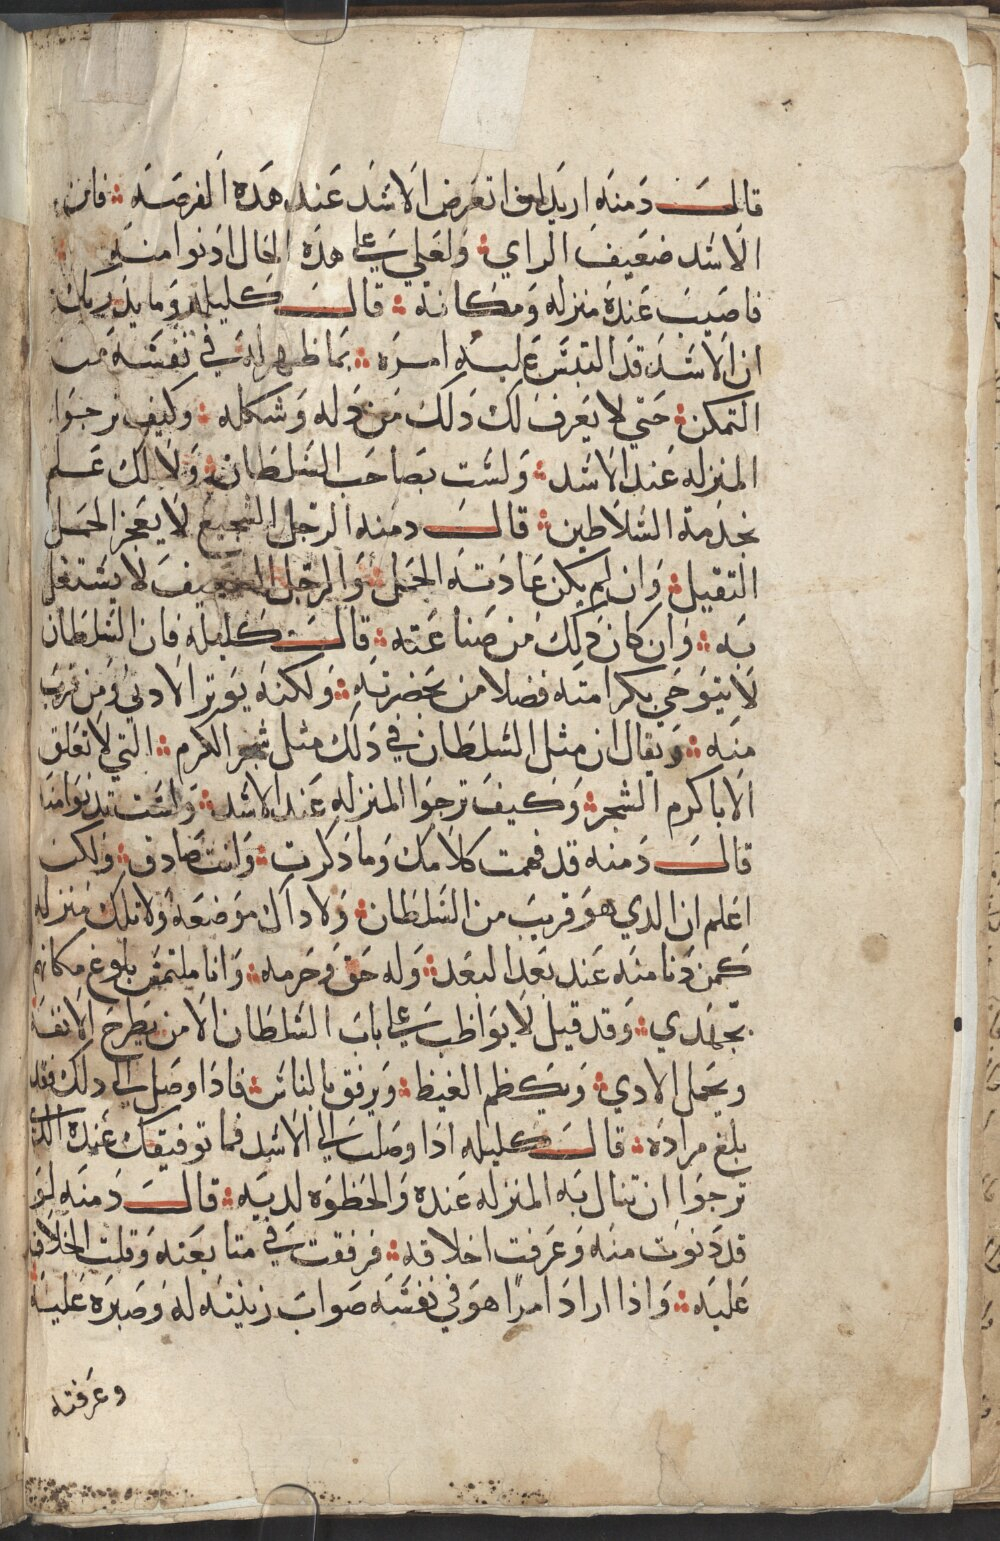 قالـــت دمنه اريد ان اتعرض الاسد عند هده الفرصه ∴ فان
الاسد ضعيف الراي ∴ ولعلي علي هده الحال ادنوا منه
فاصيب عنده منزله ومكانه ∴ قالـــت كليله وما يدريك
ان الاسد قد التبس عليه امره ∴ بما ظهر له في نفسه من
التمكن ∴ حتي لا يعرف لك دلك من دله وشكله ∴ وكيف ترجوا
المنزله عند الاسد ∴ ولست بصاحب السلطان ∴ ولا لك علم
بخدمة السلاطين ∴ قالـــت دمنه الرجل الشجيع لا يعجز الحمل
التقيل ∴ وان لم يكن عادته الحمل ∴ والرجل الضعيف لا يشتغل
به ∴ وان كان دلك من صناعته ∴ قالـــت كليله فان السلطان
لا يتوخي بكرامته فضلا من بحضرته ∴ ولكنه يوتر الادني ومن قرب
منه ∴ ويقال ان مثل السلطان في دلك مثل شجر الكرم ∴ التي لا تعلق
الا باكرم الشجر ∴ وكيف ترجوا المنزله عند الاسد ∴ ولست تدنوا منه
قالـــت دمنه قد فهمت كلامك وما دكرت ∴ وانت صادق ∴ ولكن
اعلم ان الدي هو قريب من السلطان ∴ ولا داك موضعه ولا تلك منزله
كمن دنا منه عند بعد البعد ∴ وله حق وحرمه ∴ وانا ملتمس بلوغ مكانهم
بجهدي ∴ وقد قيل لا يواظب علي باب السلطان الا من يطرح الانفه
ويحمل الادي ∴ ويكظم الغيظ ∴ ويرفق بالناس ∴ فادا وصل الي دلك فقد
بلغ مراده ∴ قالـــت كليله ادا وصلت الي الاسد فما توفيقك عنده الدي
ترجوا ان تنال به المنزله عنده والحظوه لديه ∴ قالـــت دمنه لو
قد دنوت منه وعرفت اخلاقه ∴ فرفقت في متابعته وقلت الخلاف
عليه ∴ واذا اراد امرًا هو في نفسه صواب زينته له وصبره عليه
وعرفته